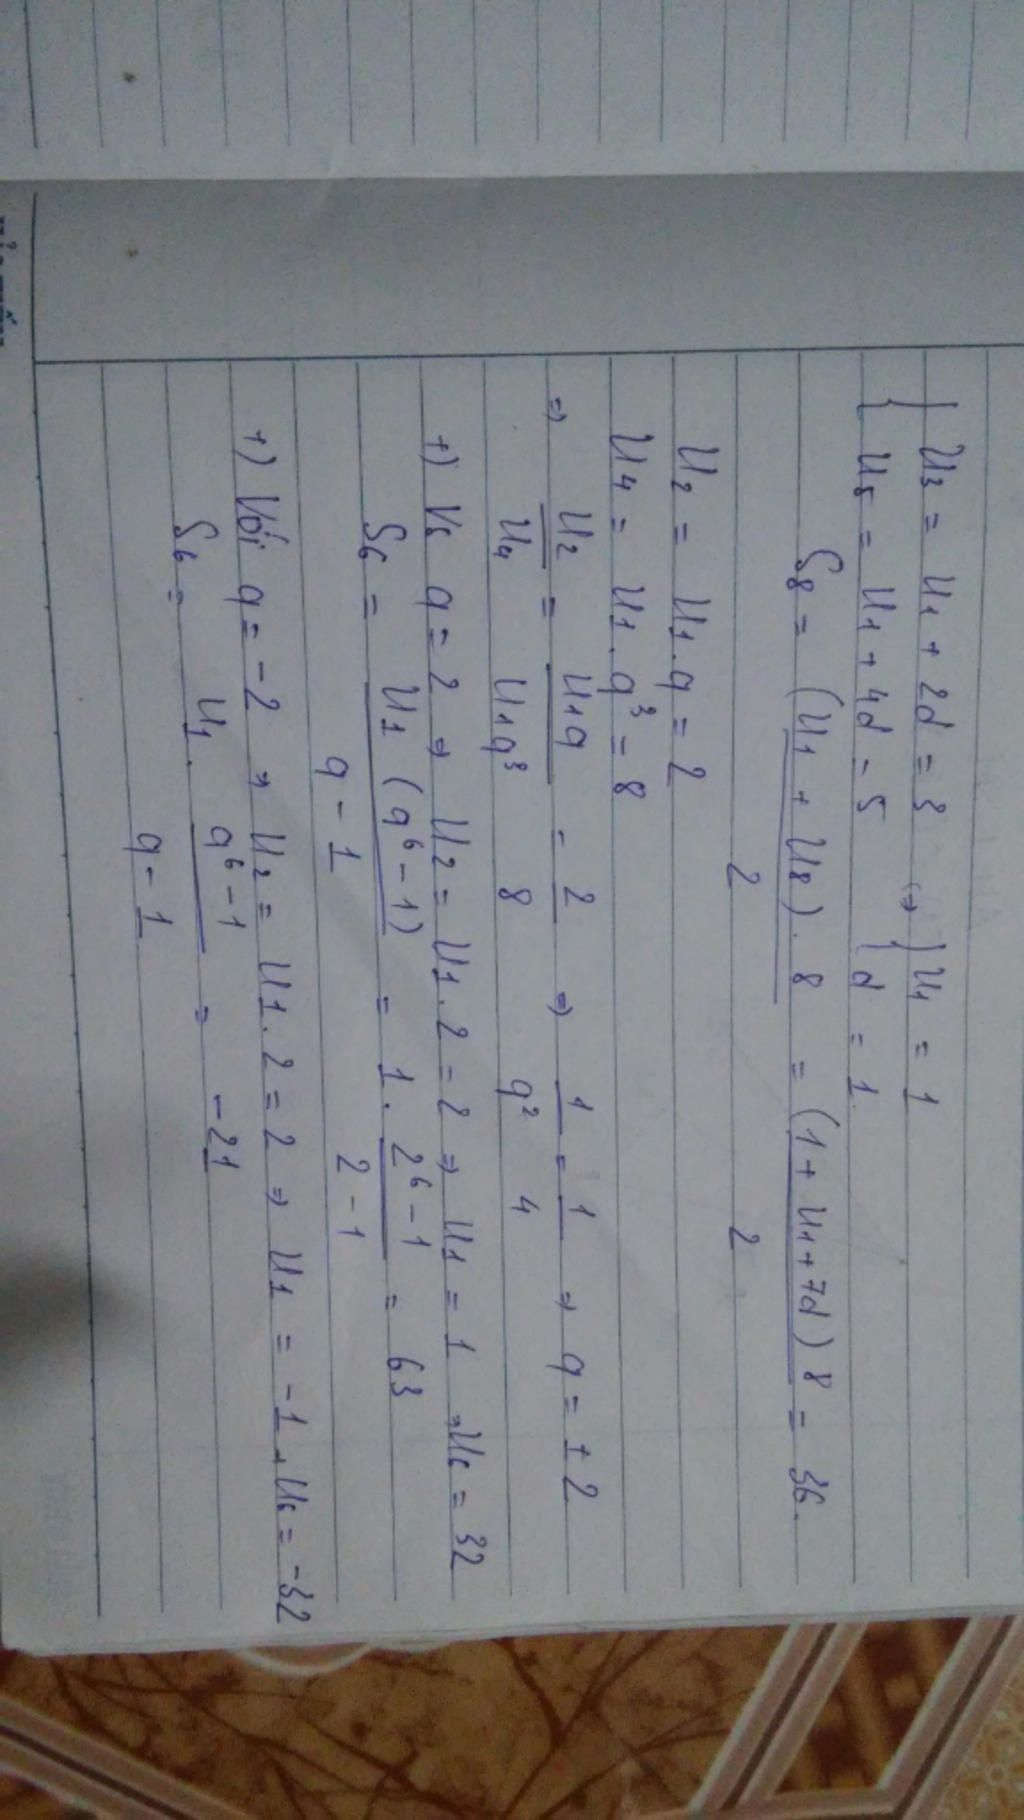 { U3 = U1 + 2d = 3 (⇒ { U1 = 1
U5 = U1 + 4d = 5 d = 1.
S8 = (U1 + U8). 8 / 2 = (1 + U1 + 7d) 8 / 2 = 36.
U2 = U1. q = 2
U4 = U1. q³ = 8
⇒ U2 / U4 = U1q / U1q³ = 2 / 8 ⇒ 1 / q² = 1 / 4 ⇒ q = ± 2
+) Vs q = 2 ⇒ U2 = U1. 2 = 2 ⇒ U1 = 1 ⇒ U6 = 32
S6 = U1 (q⁶ - 1) / q - 1 = 1. 2⁶ - 1 / 2 - 1 = 63
+) Với q = -2 ⇒ U2 = U1. 2 = 2 ⇒ U1 = -1, U6 = -32
S6 = U1. q⁶ - 1 / q - 1 = -21